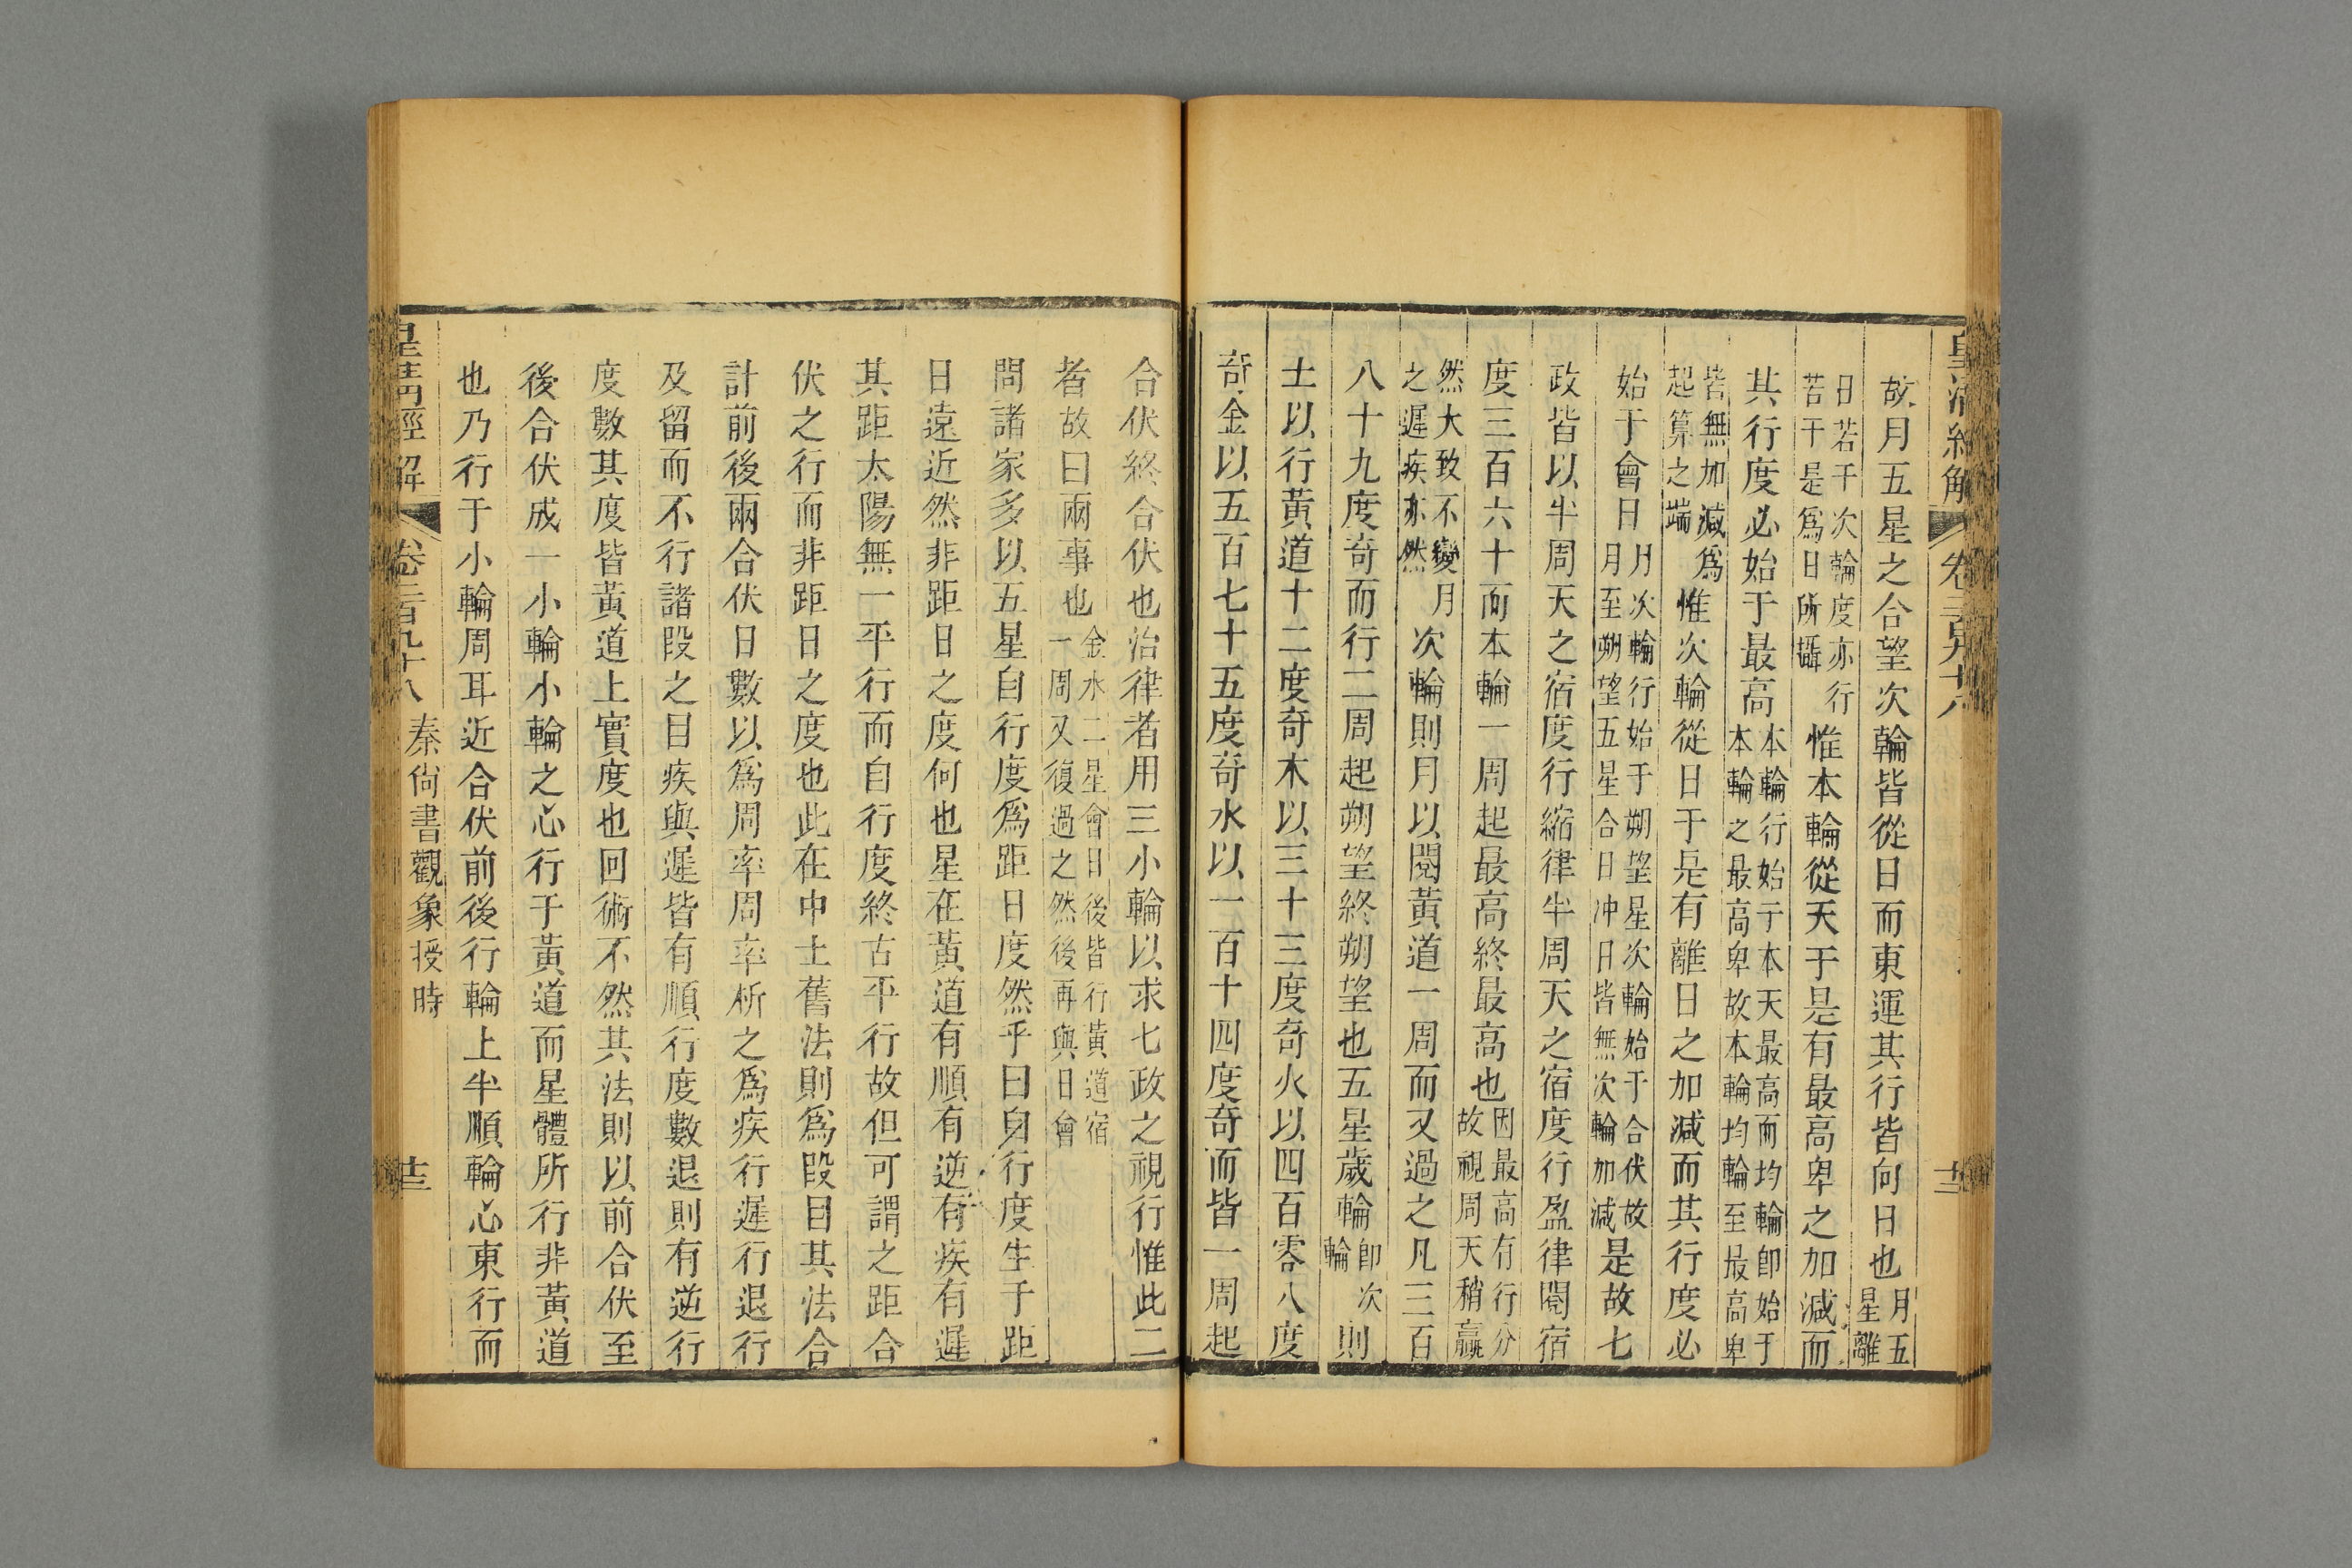 皇清經解 卷二百九十八
故月五星之合望次輪皆從日而東運其行皆向日也月五星離
日若干次輪度亦行若干是爲日所攝惟本輪從天于是有最高卑之加減而
其行度必始于最高本輪行始于本天最高而均輪卽始于本輪之最高卑故本輪均輪至最高卑
皆無加減爲起算之端惟次輪從日于是有離日之加減而其行度必
始于會日月次輪行始于朔望星次輪始于合伏故月至朔望五星合日冲日皆無次輪加減是故七
政皆以半周天之宿度行縮律半周天之宿度行盈律閱宿
度三百六十而本輪一周起最高終最高也因最高有行分故視周天稍贏
然大致不變月之遲疾亦然次輪則月以閱黃道一周而又過之凡三百
八十九度奇而行二周起朔望終朔望也五星歲輪卽次輪則
土以行黃道十二度奇木以三十三度奇火以四百零八度
奇金以五百七十五度奇水以一百十四度奇而皆一周起
合伏終合伏也治律者用三小輪以求七政之視行惟此二
者故曰兩事也金水二星會日後皆行黃道宿一周又復過之然後再與日會
問諸家多以五星自行度爲距日度然乎曰自行度生于距
日遠近然非距日之度何也星在黃道有順有逆有疾有遲
其距太陽無一平行而自行度終古平行故但可謂之距合
伏之行而非距日之度也此在中土舊法則爲段目其法合
計前後兩合伏日數以爲周率周率析之爲疾行遲行退行
及留而不行諸段之目疾與遲皆有順行度數退則有逆行
度數其度皆黃道上實度也回術不然其法則以前合伏至
後合伏成一小輪小輪之心行于黃道而星體所行非黃道
也乃行于小輪周耳近合伏前後行輪上半順輪心東行而
皇清經解 卷二百九十八 秦尙書觀象授時 十三